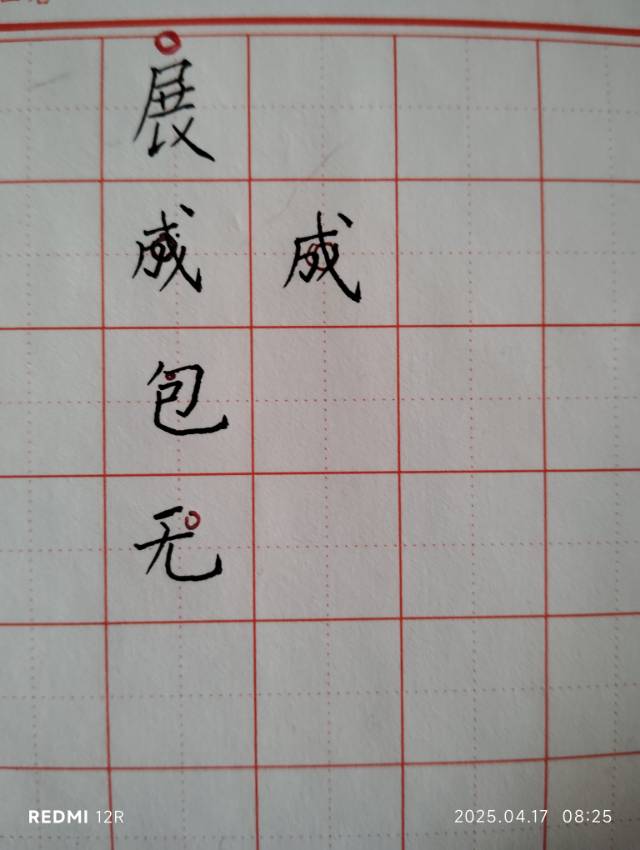 展
威 威
包
无
REDMI 12R
2025.04.17 08:25